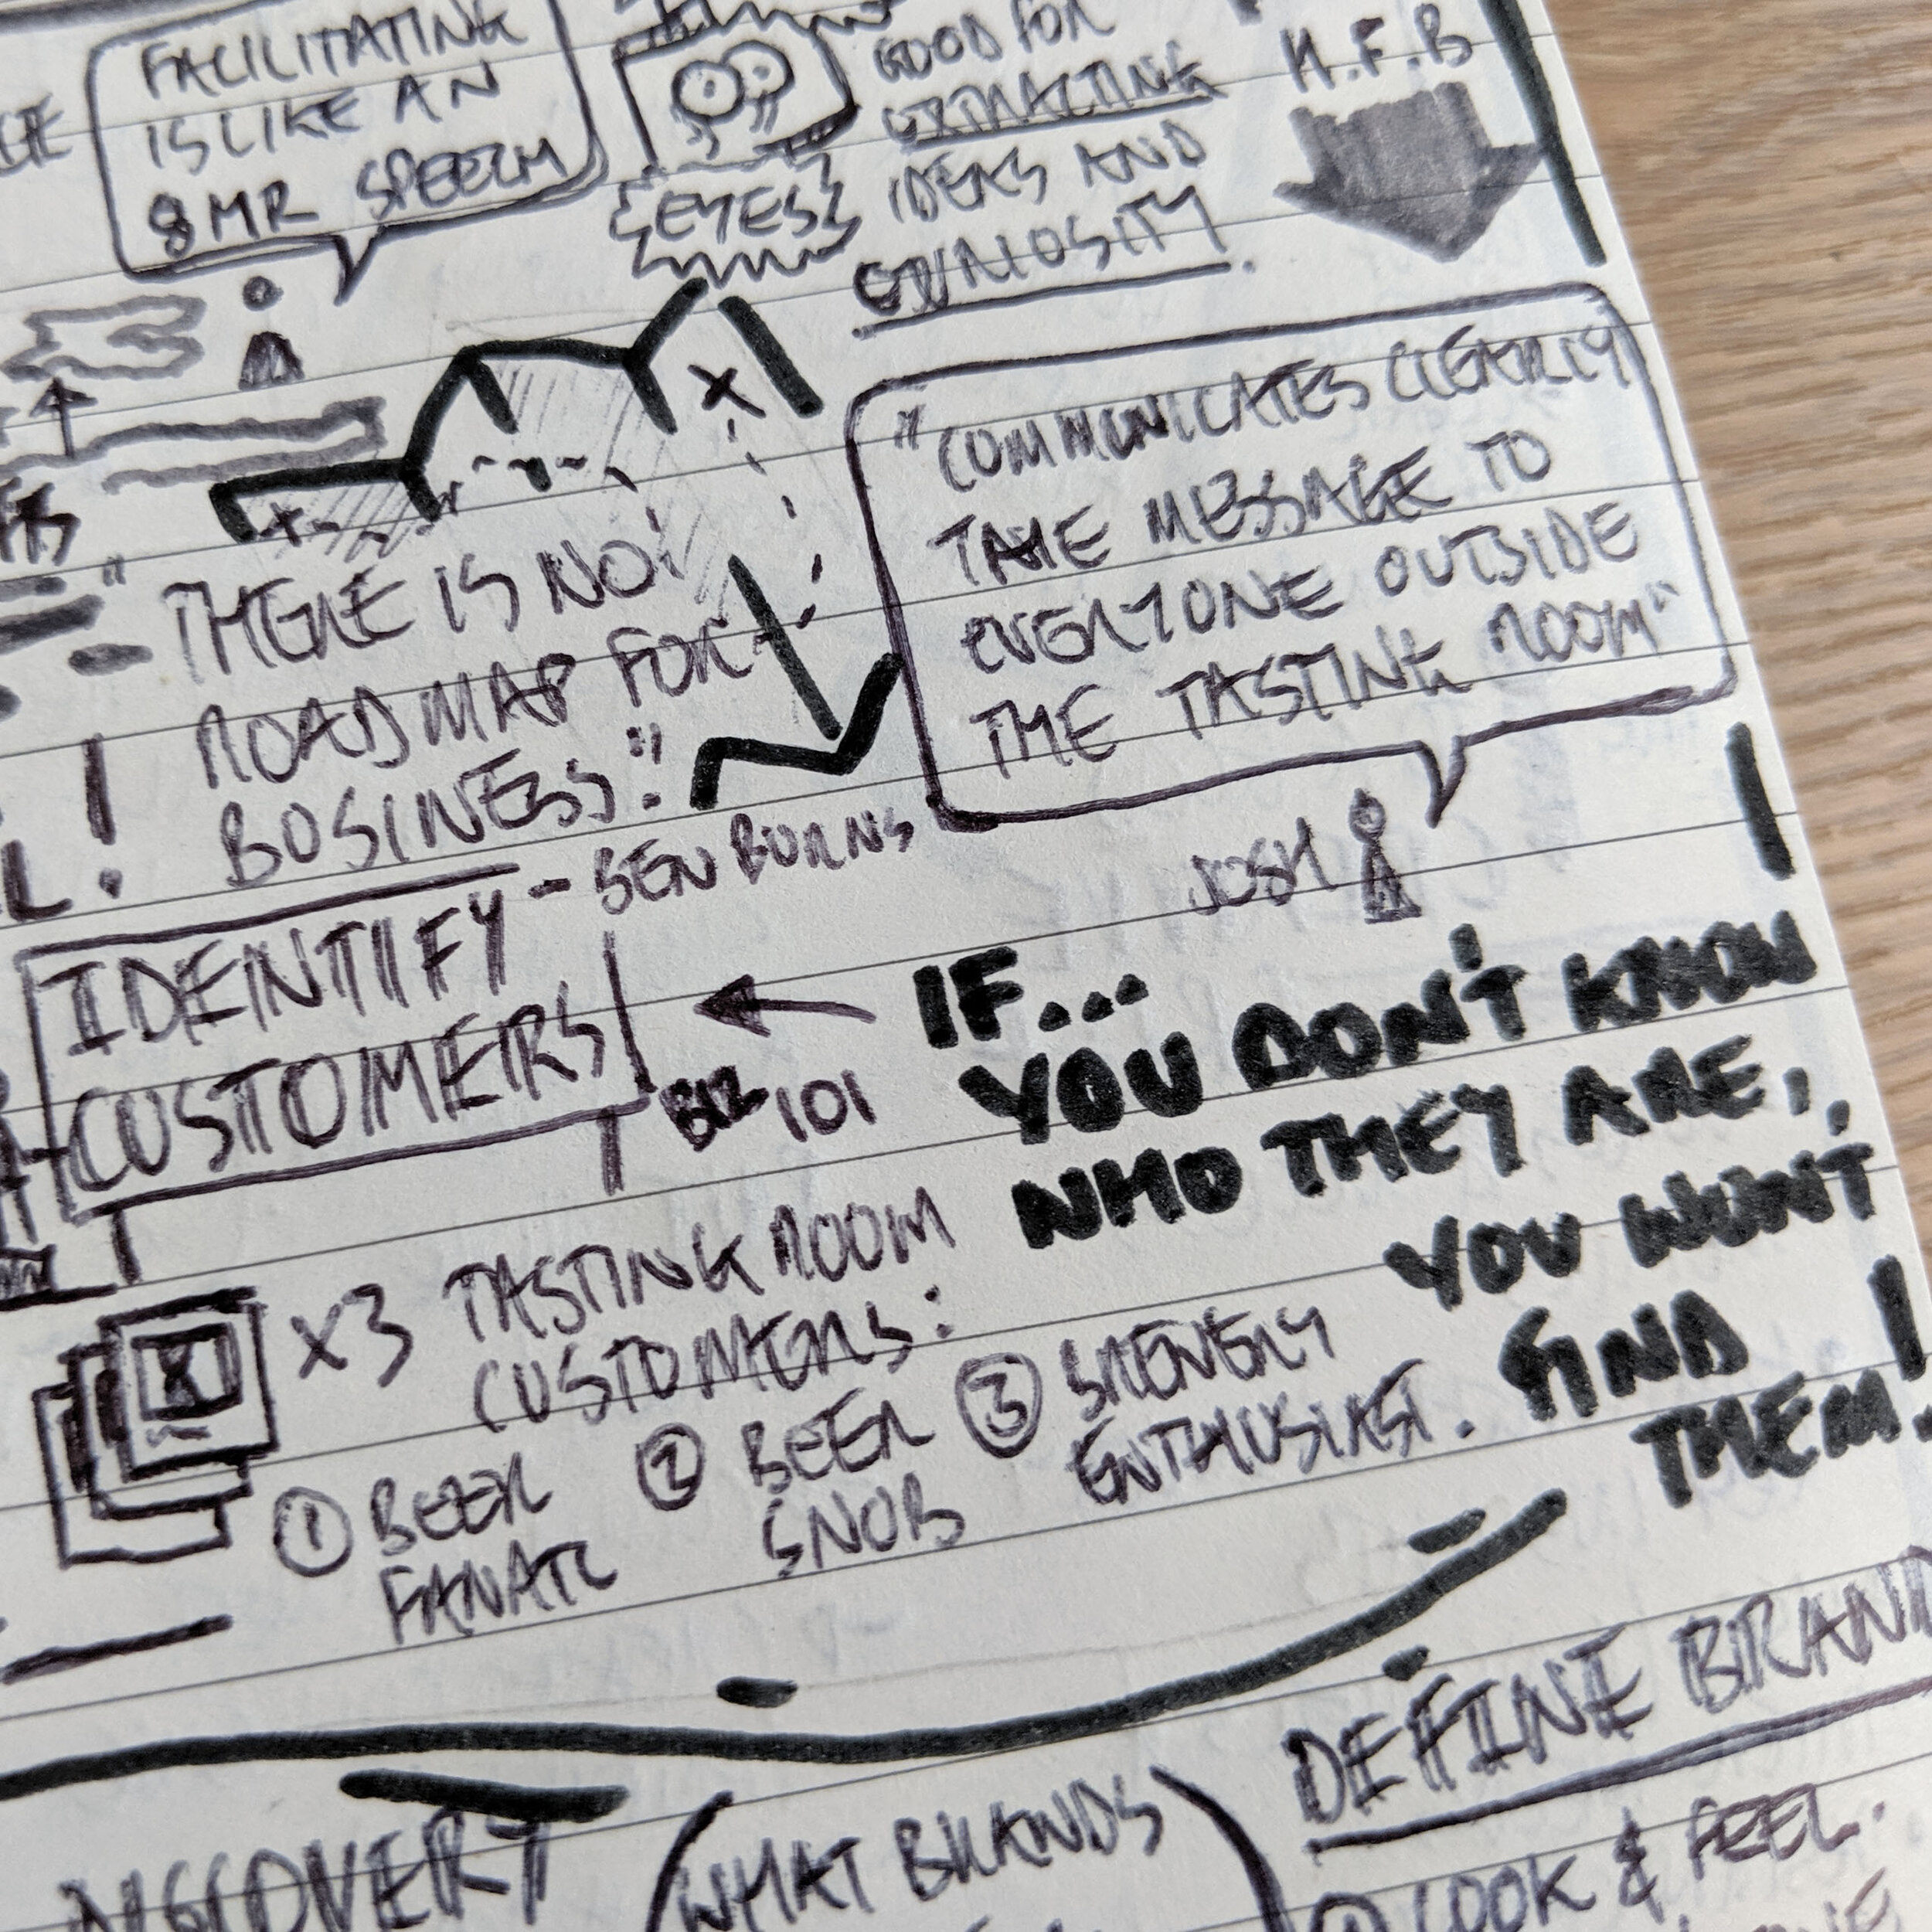 FACILITATING
IS LIKE AN
8 MR SPEECH
EYES
GOOD FOR
EXTRACTING
IDEAS AND
CURIOSITY.
H.F.B
"COMMUNICATES CLEARLY
TAKE MESSAGE TO
EVERYONE OUTSIDE
THE TASTING ROOM"
JOSH
"THERE IS NO
ROAD MAP FOR
BUSINESS."
- BEN BURNS
IDENTIFY
CUSTOMERS
BIZ 101
IF...
YOU DON'T KNOW
WHO THEY ARE,
YOU WON'T
FIND
THEM!
X3 TASTING ROOM
CUSTOMERS:
① BEER
FANATIC
② BEER
SNOB
③ BREWERY
ENTHUSIAST.
DISCOVERY
(WHAT BRANDS)
DEFINE BRAND
① LOOK & FEEL.